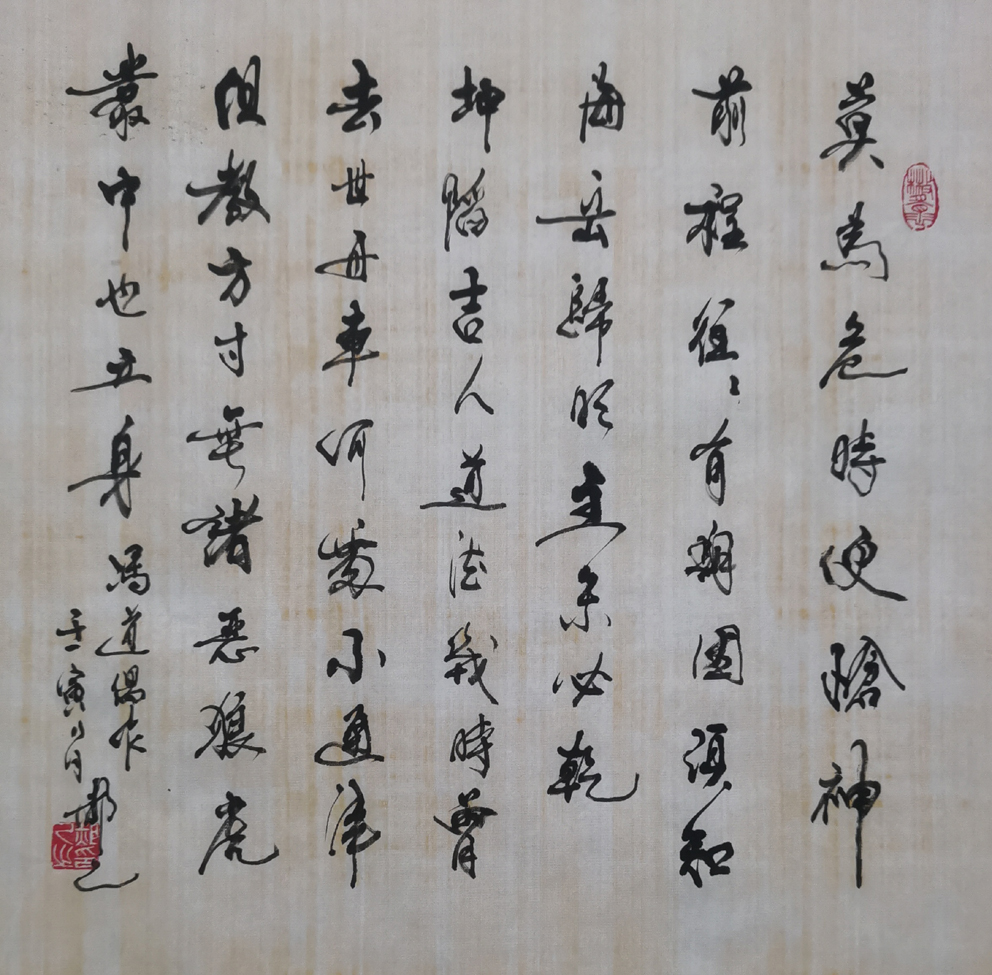 莫為危時便愴神
前程往〻有期因須知
海岳歸明主未必乾
坤陷吉人道德幾時曾
去世舟車何處不通津
但教方寸無諸惡狼虎
叢中也立身 馮道偶作
壬寅月